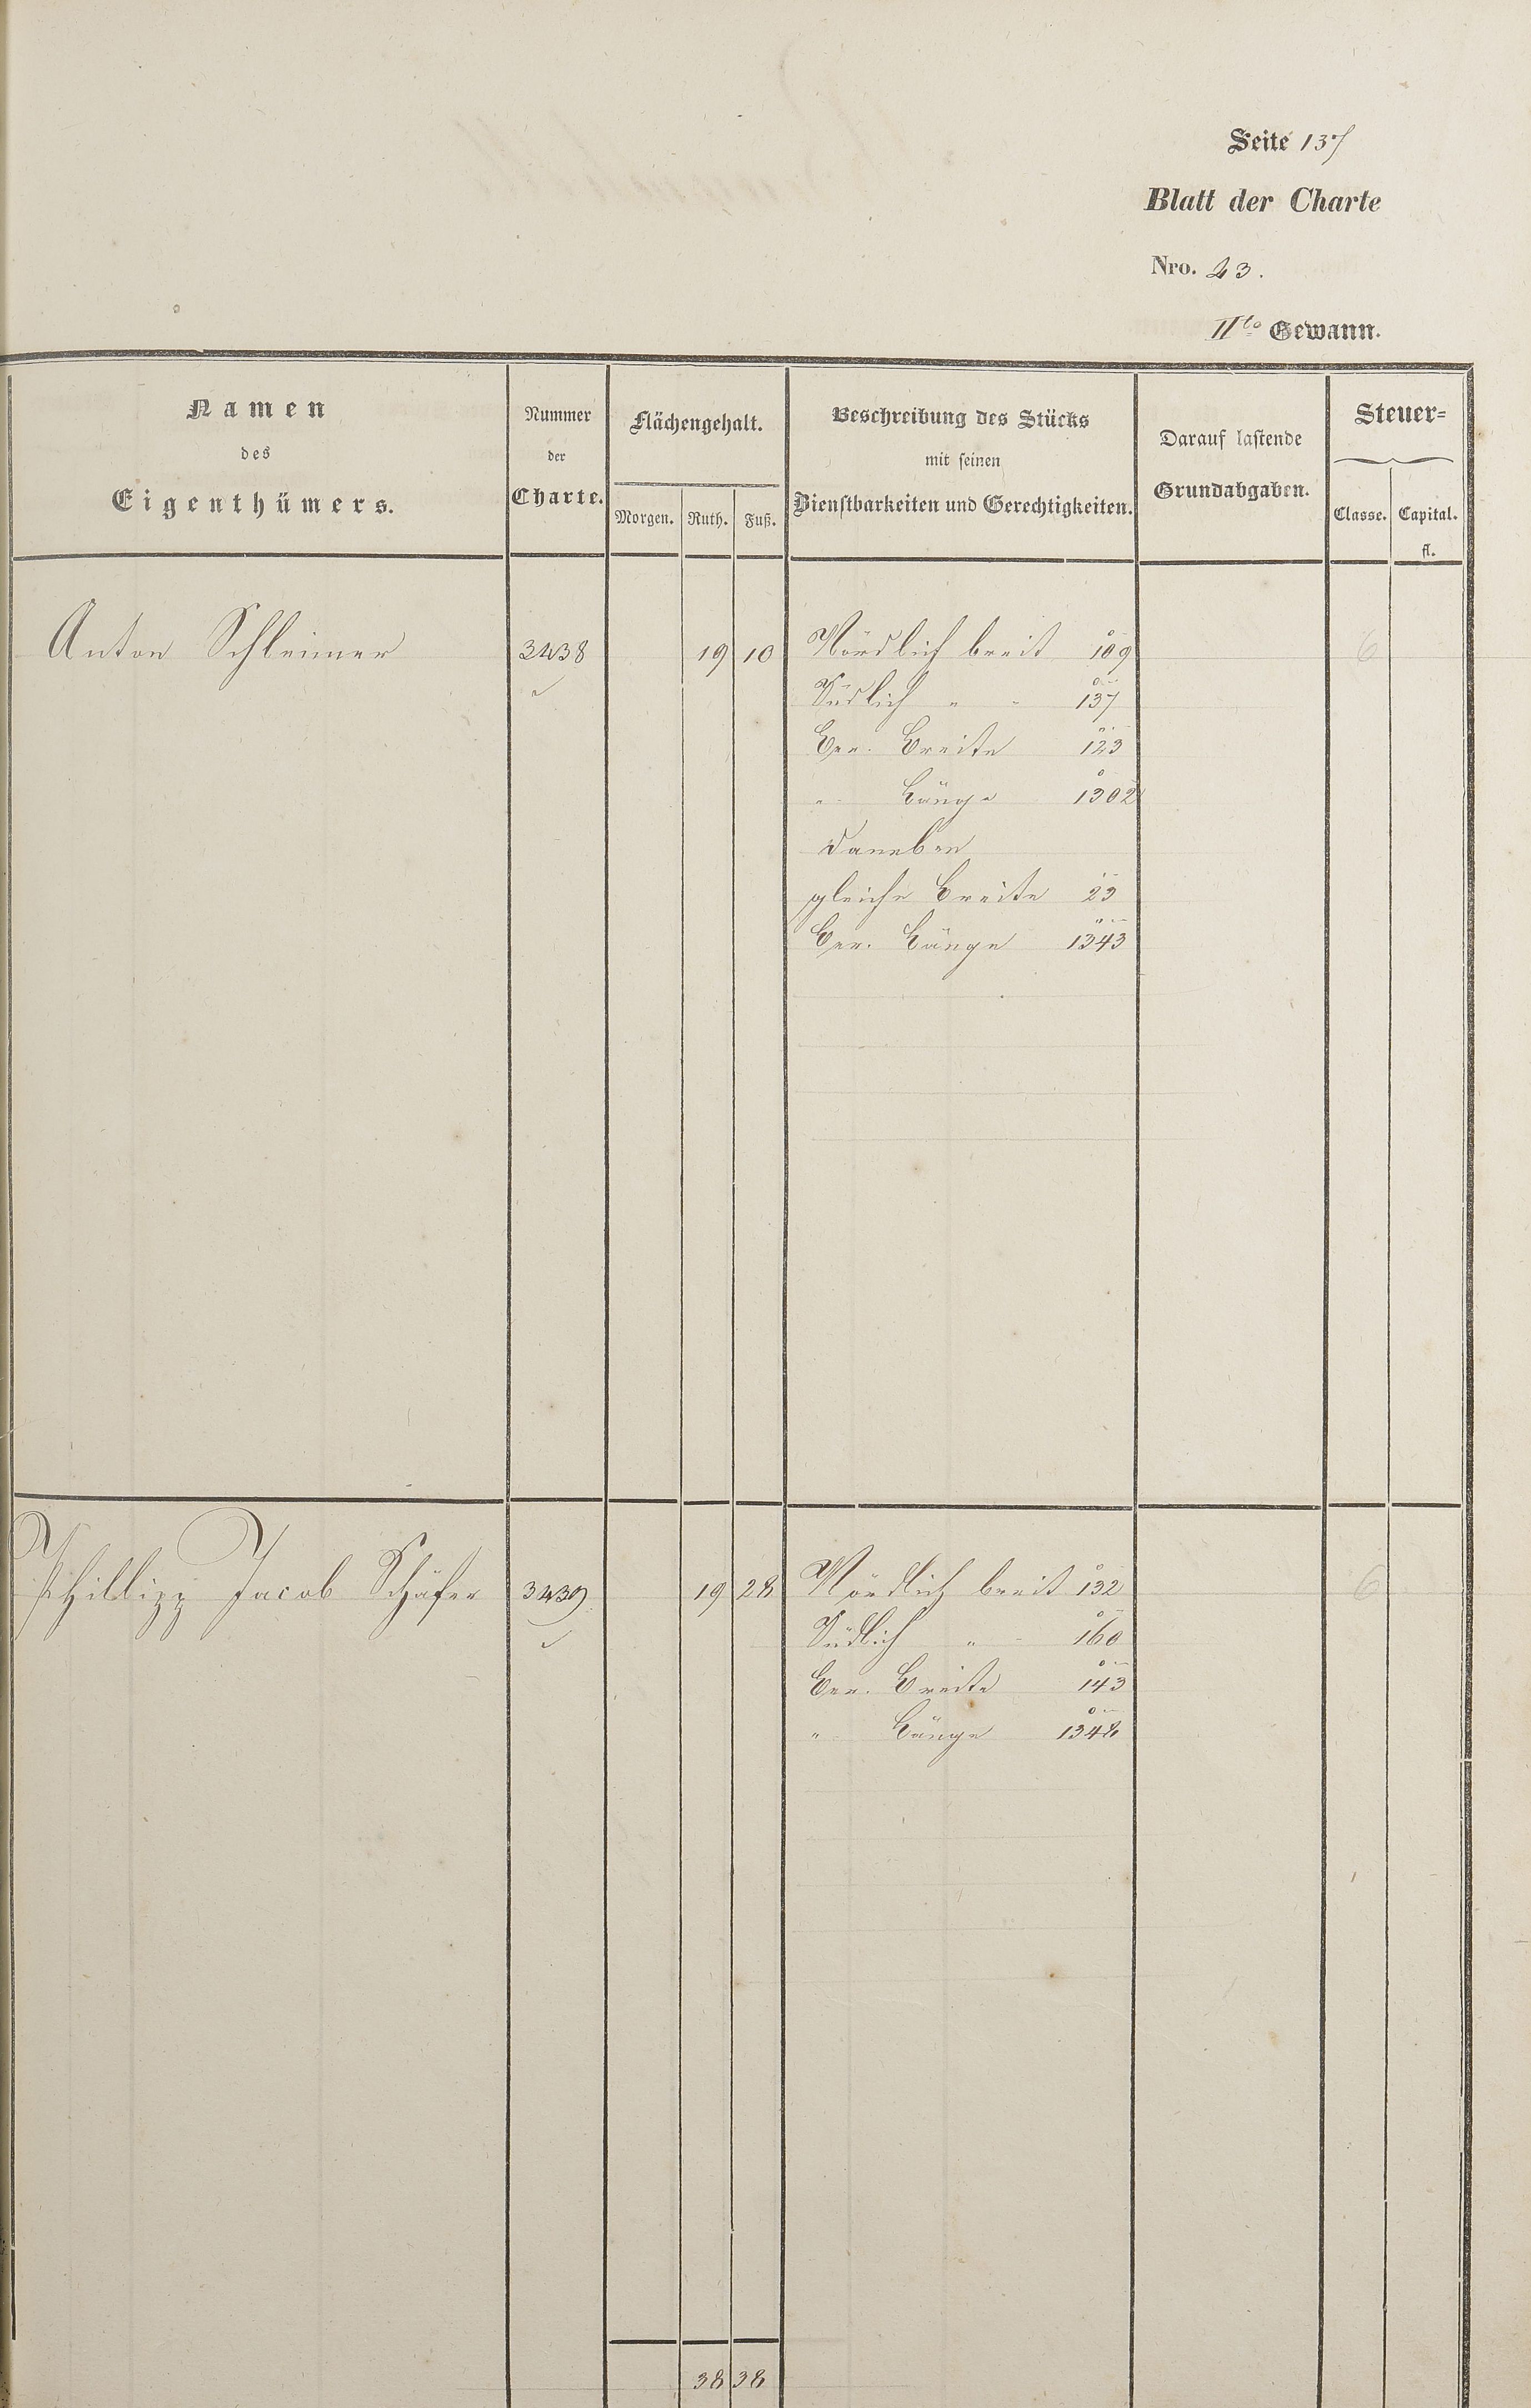 Seite 137
Blatt der Charte
Nro. 23.
IIte Gewann.
Namen
des
Eigenthümers.
Nummer
der
Charte.
Flächengehalt.
Morgen. Ruth. Fuß.
Beschreibung des Stücks
mit seinen
Dienstbarkeiten und Gerechtigkeiten.
Darauf lastende
Grundabgaben.
Steuer=
Classe. Capital.
fl.
Anton Schleimer 3438 19 10 Nördlich breit 109 6
Südlich " " 137
Ber. Breite 123
" Länge 1302
daneben
gleiche Breite 23
Ber. Länge 1343
Phillipp Jacob Schäfer 3439 19 28 Nördlich breit 132 6
Südlich " 160
Ber. Breite 143
" Länge 1348
38 38